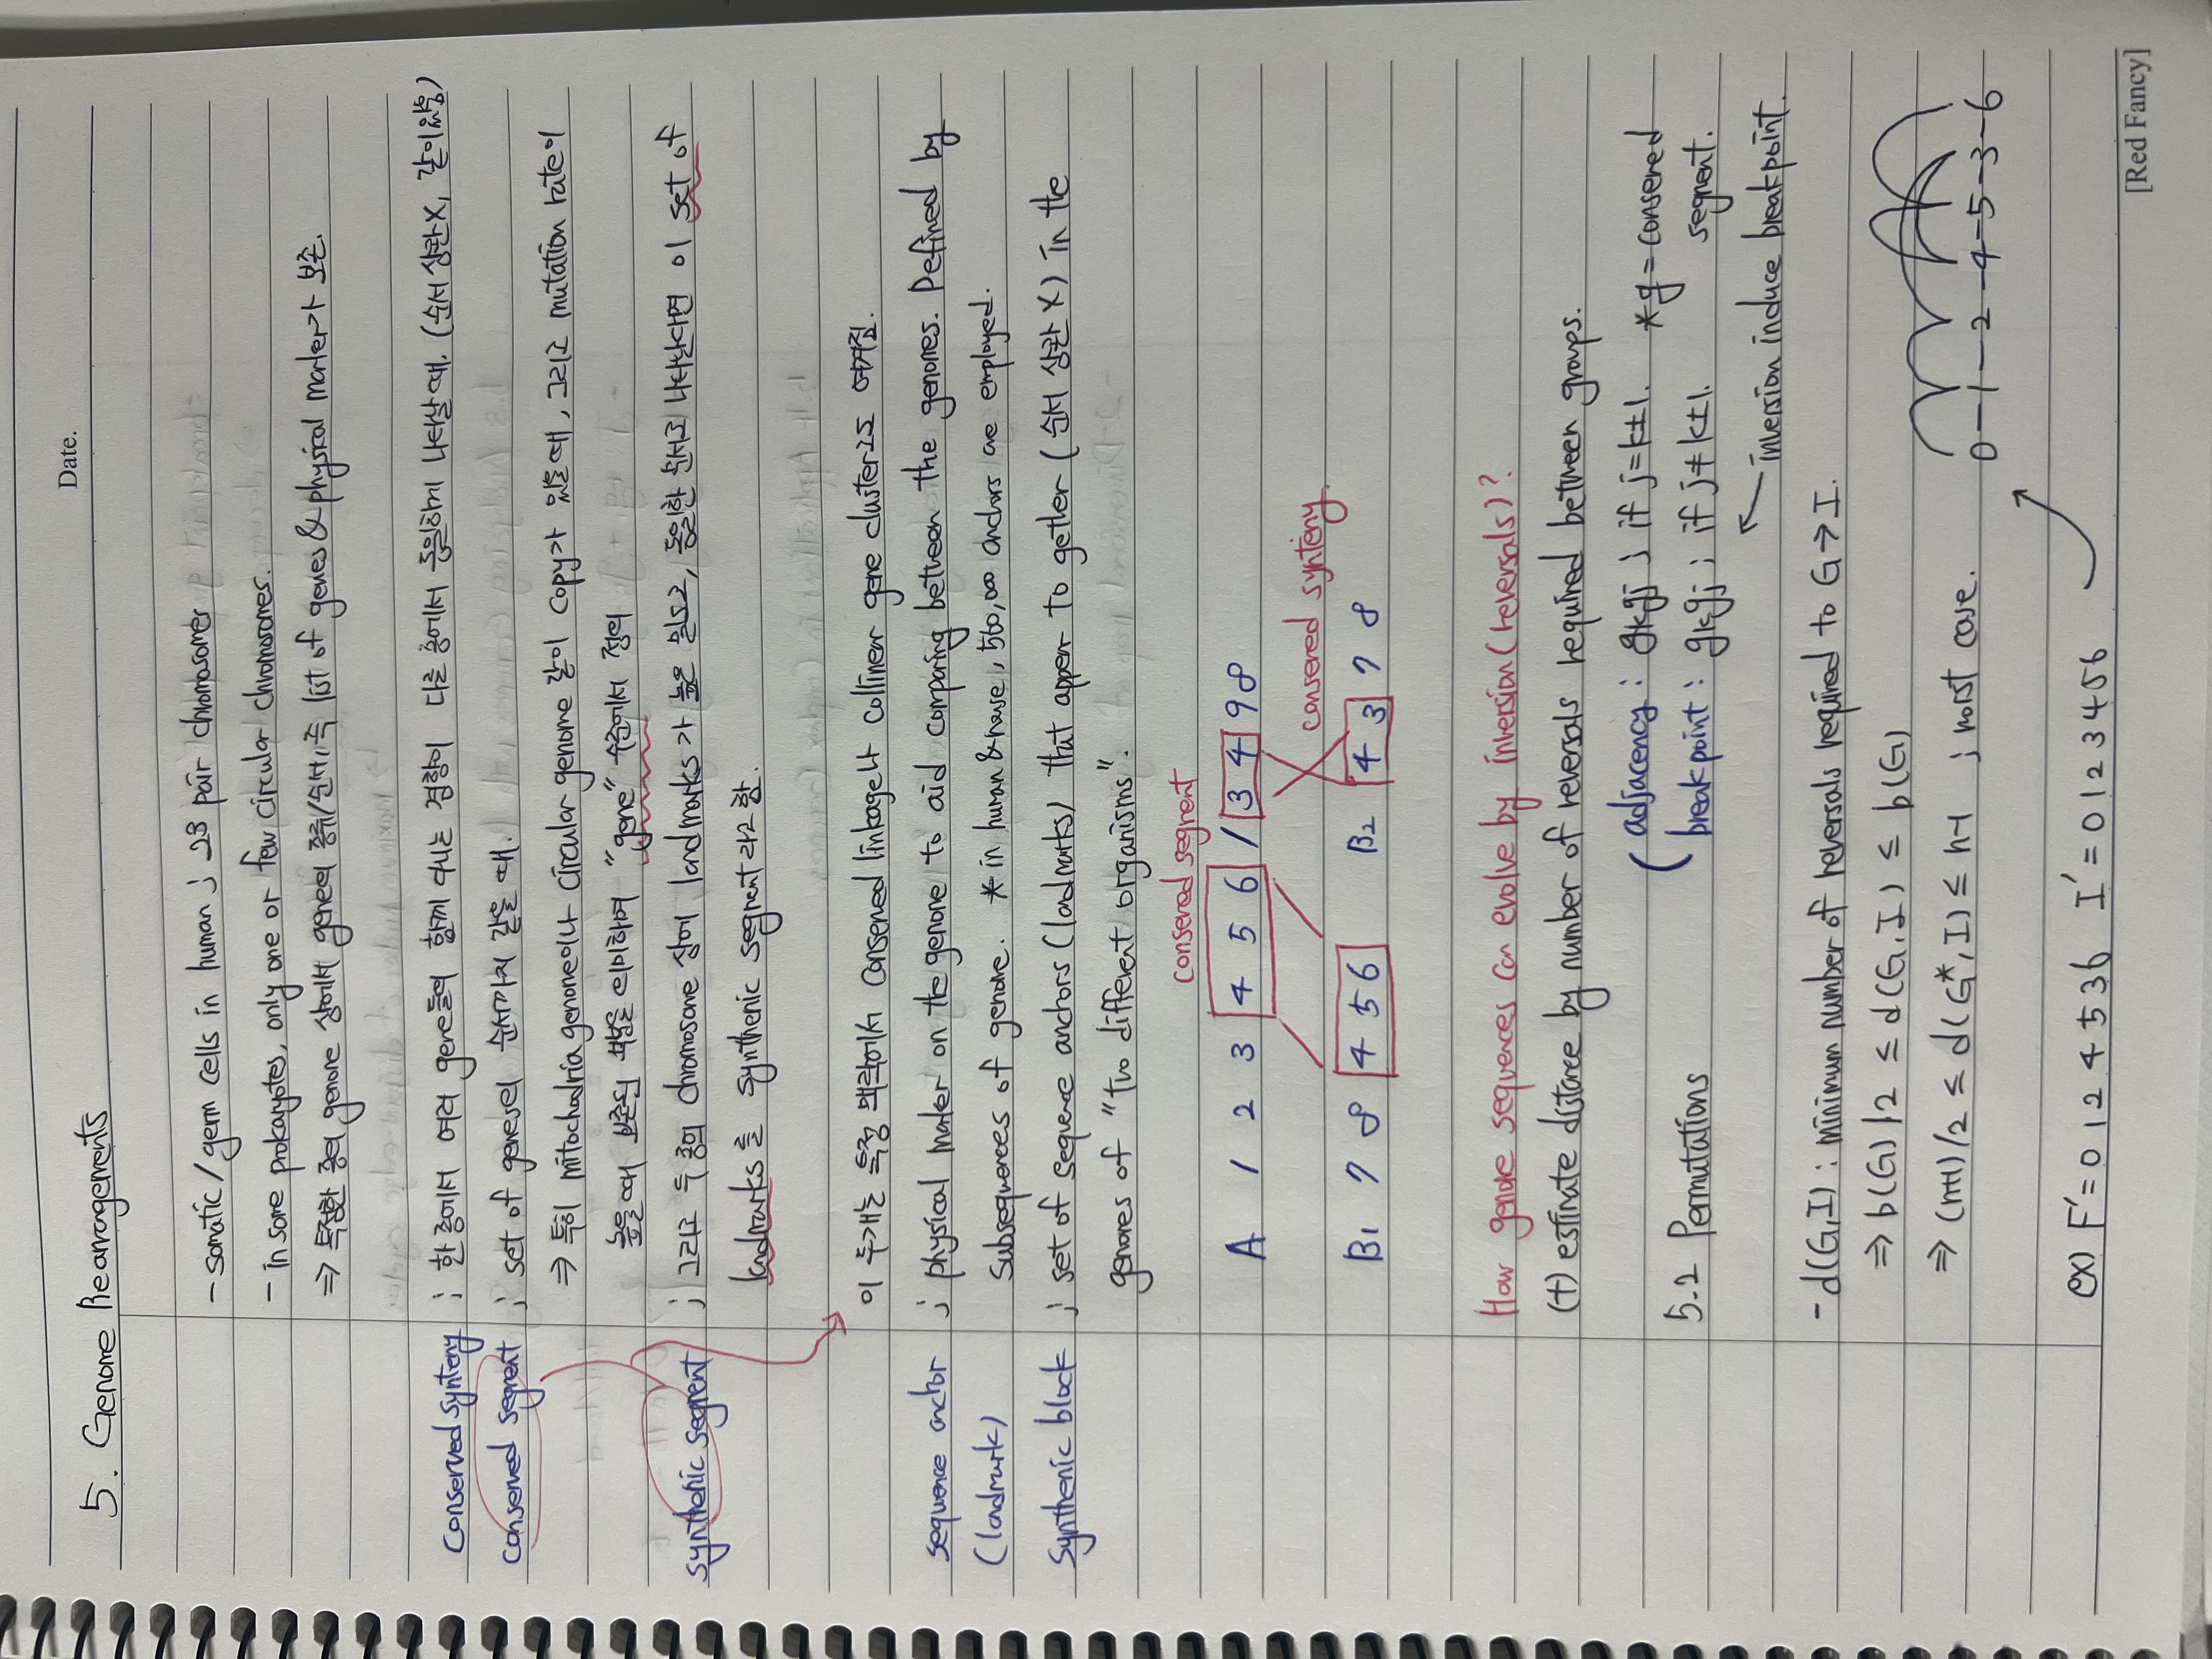 Date.
5. Genome Rearrangements
- somatic / germ cells in human ; 23 pair chromosomes
- in some prokaryotes, only one or few circular chromosomes.
⇒ 특정한 종의 genome 상에서 gene의 종류/순서, 즉 list of genes & physical marker가 보존.
Conserved synteny ; 한 종에서 여러 gene들의 함께 나타나는 경향이 다른 종에서 동일하게 나타날 때. (순서 상관X, 같이있음)
Conserved segment ; set of genes의 순서까지 같을 때.
⇒ 특히 mitochodria genome이나 circular genome 같이 copy가 있을 때, 그리고 mutation rate이
높을 때 보존된 부분을 의미하며 "gene" 수준에서 정의
synthenic segment ; 그리고 두 종의 chromosome 상에 landmarks가 높은 밀도로, 동일한 순서로 나타난다면 이 set of
landmarks를 synthenic segment라고 함.
이 두개는 특정 맥락에서 conserved linkage나 collinear gene cluster으로 여겨짐.
sequence anchor ; physical marker on the genome to aid comparing between the genomes. Defined by
(landmark) subsequences of genome. * in human & mouse, 560,000 anchors are employed.
Synthenic block ; set of sequence anchors (landmarks) that apper to getler (순서 상관 X) in the
genomes of "two different organisms".
conserved segment
A 1 2 3 4 5 6 / 3 4 9 8
conserved synteny.
B1 7 8 4 5 6 B2 4 3 7 8
How genome sequences can evolve by inversion (reversals)?
(+) estimate distance by number of reversals required between groups.
( adjacency : gkgj ; if j=k±1. * g = conserved
5.2 Permutations breakpoint : gkgj ; if j≠k±1. segment.
inversion induce breakpoint.
- d(G,I) : minimum number of reversals required to G→I.
⇒ b(G)/2 ≤ d(G,I) ≤ b(G)
⇒ (n+1)/2 ≤ d(G*,I) ≤ n-1 ; worst case.
0-1-2-4-5-3-6
ex) F'=0 1 2 4 5 3 6 I'=0 1 2 3 4 5 6
[Red Fancy]